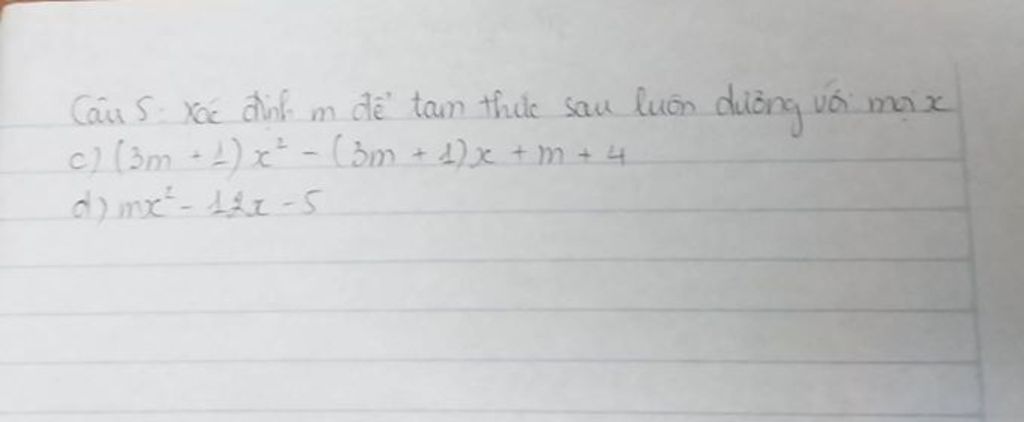 Câu 5: Xác định m để tam thức sau luôn dương với mọi x
c) (3m + 1)x² - (3m + 1)x + m + 4
d) mx² - 12x - 5